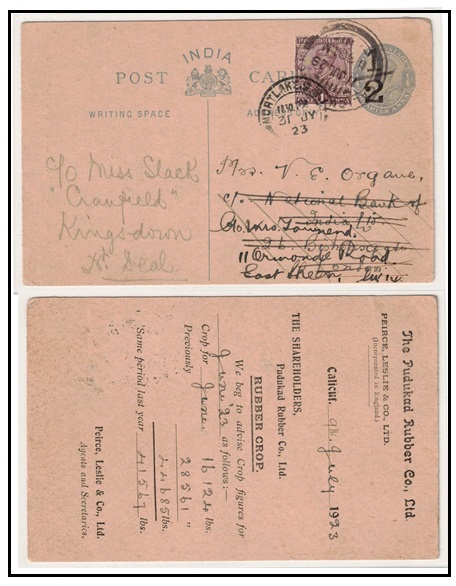 INDIA
POST CARD
WRITING SPACE
MORTLAKE
31 JY
23
1/2
Mrs. V. E. Organe,
c/o National Bank of
India Ltd
c/o Mrs. Townend.
26 Bishopsgate
11 Ormonde Road.
London
East Sheen, SW 14.
c/o Miss Slack
"Cranfield"
Kingsdown
Nr. Deal
The Pudukad Rubber Co., Ltd.
PEIRCE, LESLIE & CO., LTD.
(Incorporated in England)
Calicut, 9th July 1923
THE SHAREHOLDERS,
Pudukad Rubber Co., Ltd.
RUBBER CROP.
We beg to advise Crop figures for
June 23 as follows:-
Crop for June. 16124 lbs.
Previously 28561 "
44685 lbs.
Same period last year 41567 lbs.
Peirce, Leslie & Co., Ltd.
Agents and Secretaries.